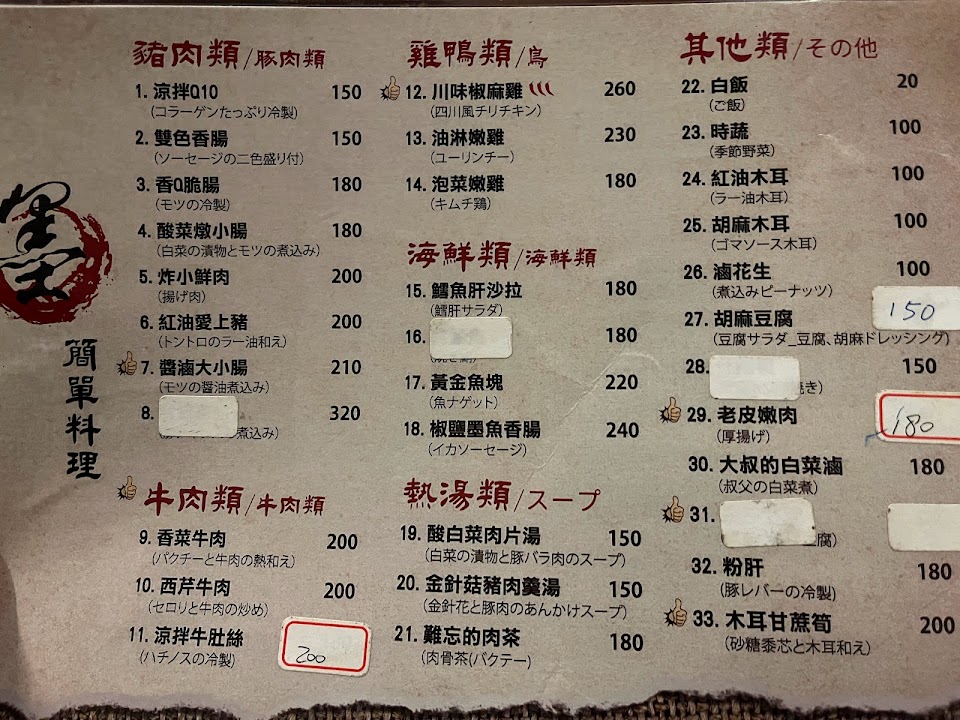 墨
簡單料理
豬肉類/豚肉類
1. 涼拌Q10 150
(コラーゲンたっぷり冷製)
2. 雙色香腸 150
(ソーセージの二色盛り付)
3. 香Q脆腸 180
(モツの冷製)
4. 酸菜燉小腸 180
(白菜の漬物とモツの煮込み)
5. 炸小鮮肉 200
(揚げ肉)
6. 紅油愛上豬 200
(トントロのラー油和え)
7. 醬滷大小腸 210
(モツの醤油煮込み)
8. 320
煮込み)
牛肉類/牛肉類
9. 香菜牛肉 200
(パクチーと牛肉の熱和え)
10. 西芹牛肉 200
(セロリと牛肉の炒め)
11. 涼拌牛肚絲 200
(ハチノスの冷製)
雞鴨類/鳥
12. 川味椒麻雞 260
(四川風チリチキン)
13. 油淋嫩雞 230
(ユーリンチー)
14. 泡菜嫩雞 180
(キムチ鶏)
海鮮類/海鮮類
15. 鱈魚肝沙拉 180
(鱈肝サラダ)
16. 180
17. 黃金魚塊 220
(魚ナゲット)
18. 椒鹽墨魚香腸 240
(イカソーセージ)
熱湯類/スープ
19. 酸白菜肉片湯 150
(白菜の漬物と豚バラ肉のスープ)
20. 金針菇豬肉羹湯 150
(金針花と豚肉のあんかけスープ)
21. 難忘的肉茶 180
(肉骨茶(バクテー)
其他類/その他
22. 白飯 20
(ご飯)
23. 時蔬 100
(季節野菜)
24. 紅油木耳 100
(ラー油木耳)
25. 胡麻木耳 100
(ゴマソース木耳)
26. 滷花生 100
(煮込みピーナッツ)
27. 胡麻豆腐 150
(豆腐サラダ_豆腐、胡麻ドレッシング)
28. 150
焼き)
29. 老皮嫩肉 180
(厚揚げ)
30. 大叔的白菜滷 180
(叔父の白菜煮)
31.
腐)
32. 粉肝 180
(豚レバーの冷製)
33. 木耳甘蔗筍 200
(砂糖黍芯と木耳和え)